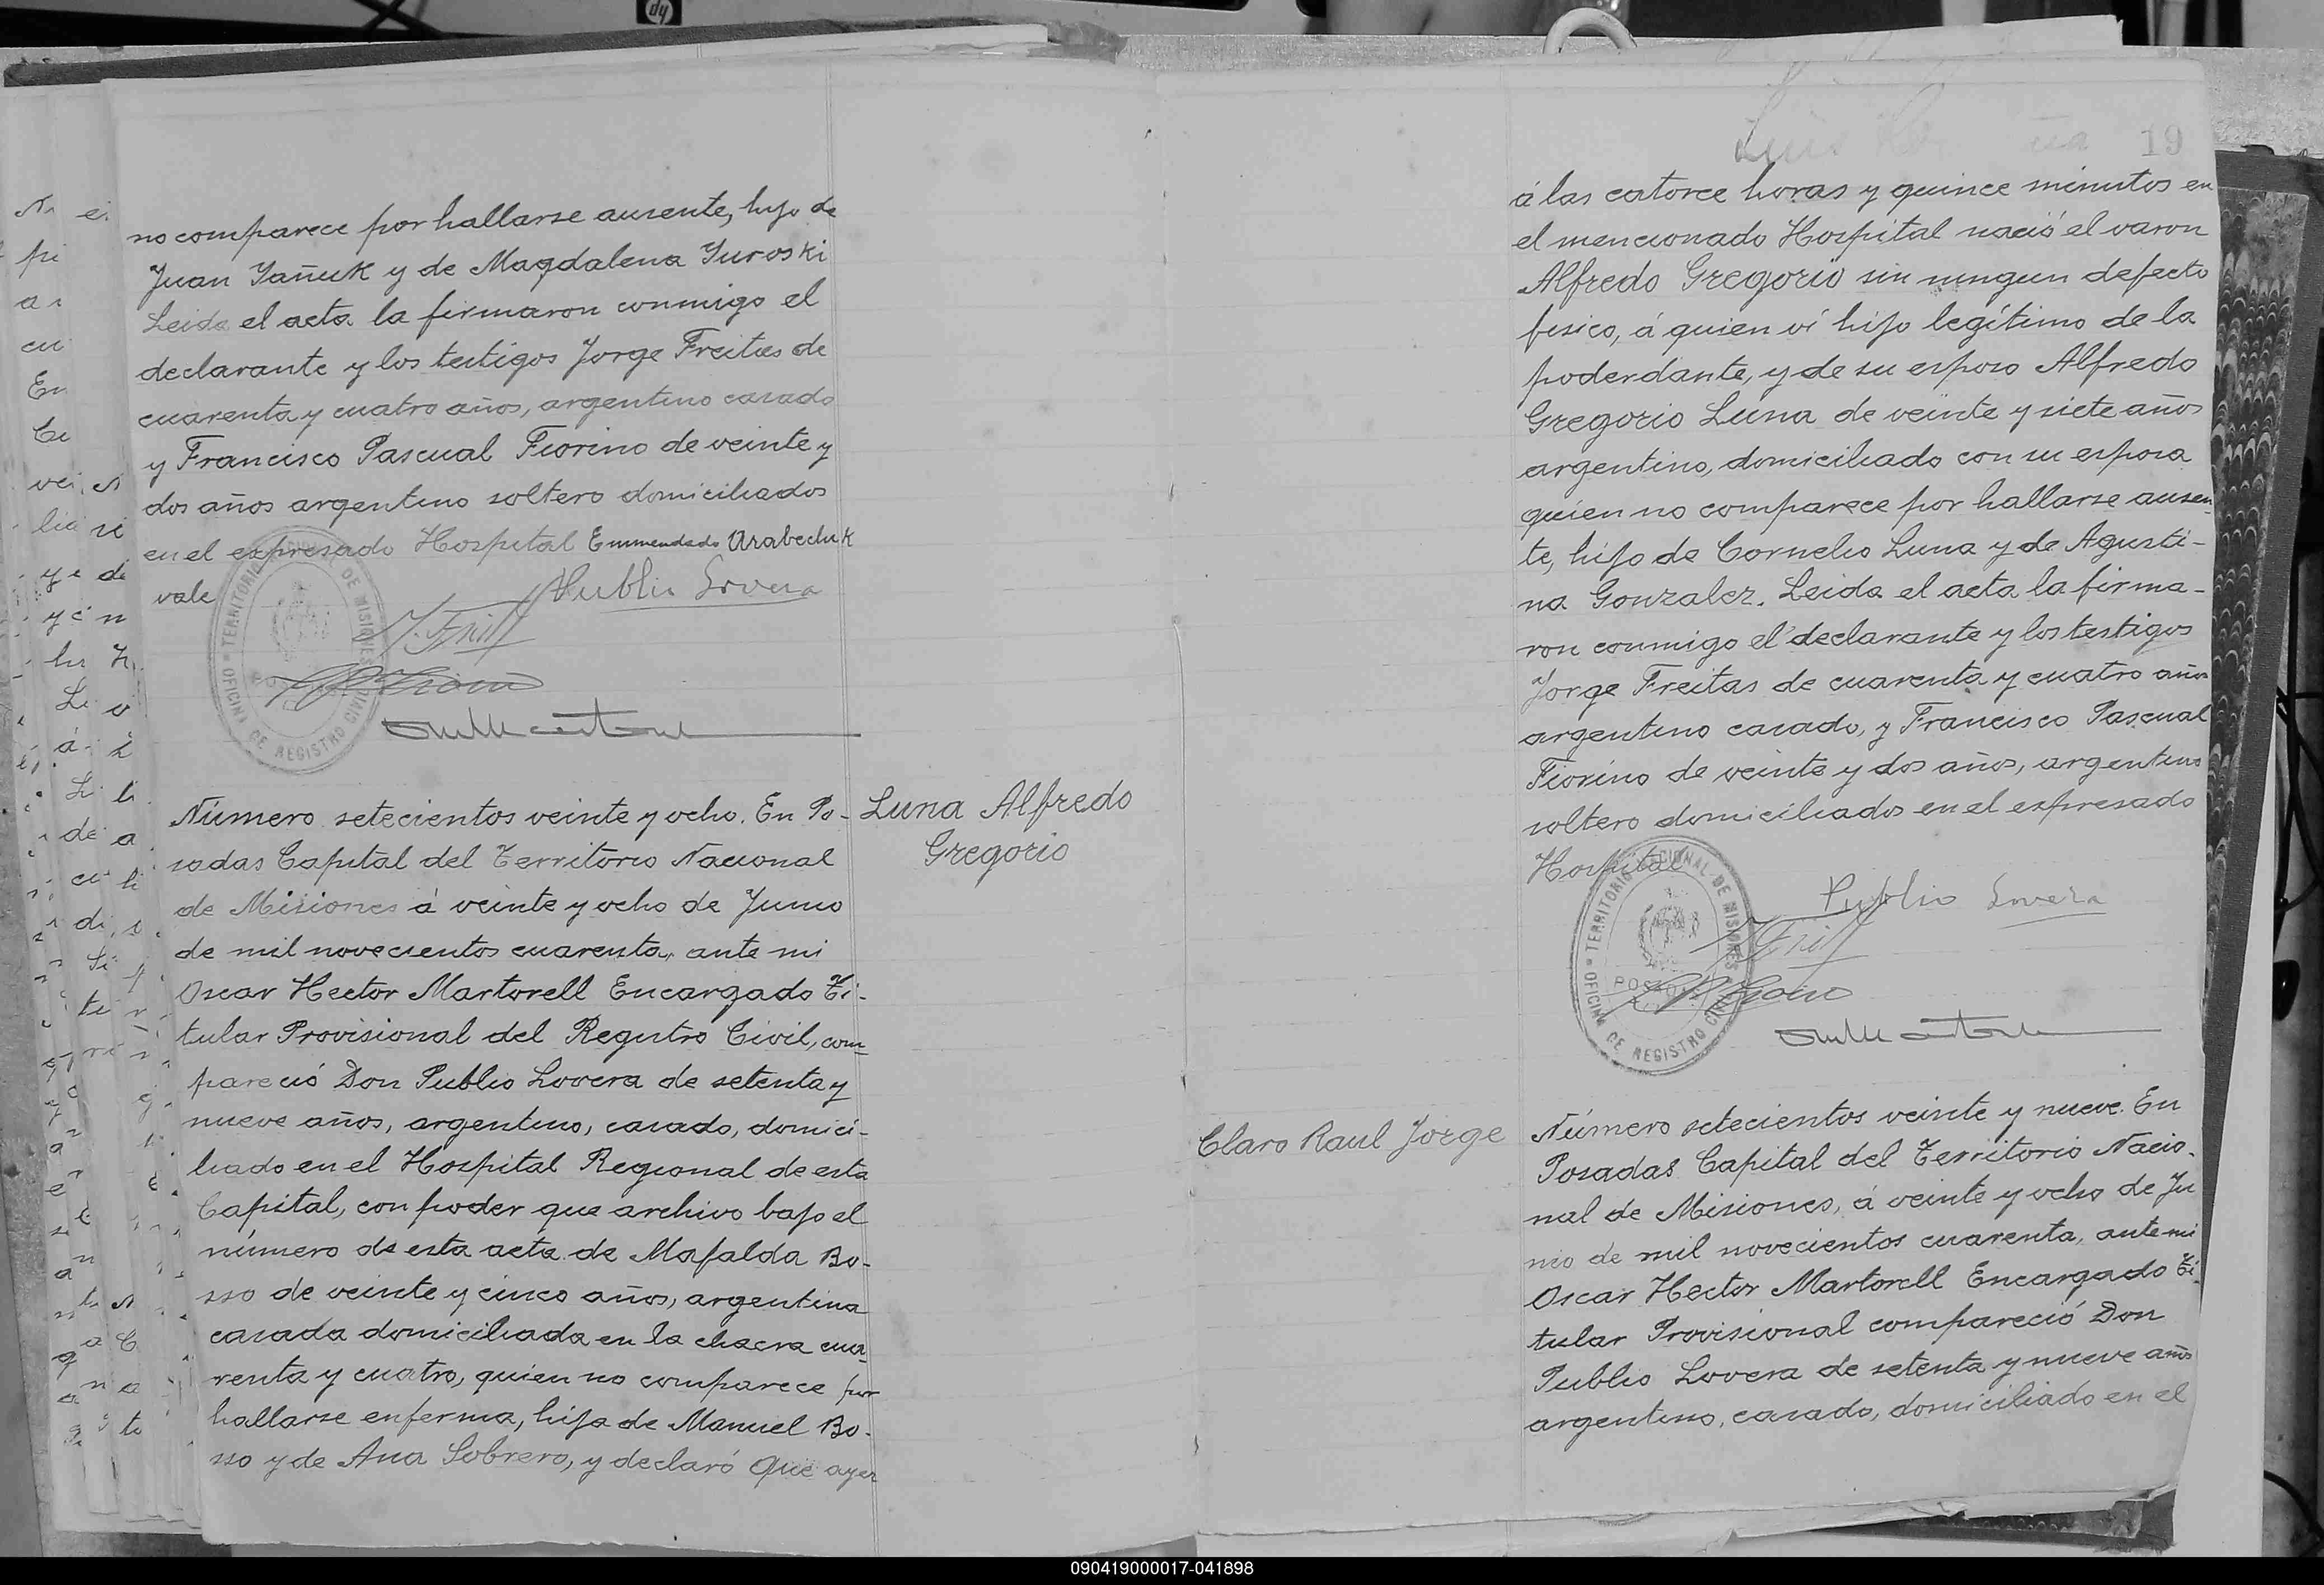 no comparece por hallarse ausente, hijo de
Juan Yañuk y de Magdalena Yuroski
Leida el acta la firmaron conmigo el
declarante y los testigos Jorge Freitas de
cuarenta y cuatro años, argentino casado
y Francisco Pascual Fiorino de veinte y
dos años argentino soltero domiciliados
en el expresado Hospital Emmendado Arabechuk
vale
Publio Lovera
TERRITORIO NACIONAL DE MISIONES
OFICINA DE REGISTRO CIVIL
Número setecientos veinte y ocho. En Po-
sadas Capital del Territorio Nacional
de Misiones á veinte y ocho de Junio
de mil novecientos cuarenta, ante mi
Oscar Hector Martorell Encargado Ti-
tular Provisional del Registro Civil, com-
pareció Don Publio Lovera de setenta y
nueve años, argentino, casado, domici-
liado en el Hospital Regional de esta
Capital, con poder que archivo bajo el
número de esta acta de Mafalda Bo-
sso de veinte y cinco años, argentina
casada domiciliada en la chacra cua-
renta y cuatro, quien no comparece por
hallarse enferma, hija de Manuel Bo-
sso y de Ana Sobrero, y declaró Que ayer
Luna Alfredo
Gregorio
19
á las catorce horas y quince minutos en
el mencionado Hospital nació el varon
Alfredo Gregorio sin ningun defecto
fisico, á quien ví hijo legítimo de la
poderdante, y de su esposo Alfredo
Gregorio Luna de veinte y siete años
argentino, domiciliado con su esposa
quien no comparece por hallarse ausen-
te, hijo de Cornelio Luna y de Agusti-
na Gonzalez. Leida el acta la firma-
ron conmigo el declarante y los testigos
Jorge Freitas de cuarenta y cuatro años
argentino casado, y Francisco Pascual
Fiorino de veinte y dos años, argentino
soltero domiciliados en el expresado
Hospital
Publio Lovera
TERRITORIO NACIONAL DE MISIONES
POSADAS
OFICINA DE REGISTRO CIVIL
Claro Raul Jorge
Número setecientos veinte y nueve. En
Posadas Capital del Territorio Nacio-
nal de Misiones, á veinte y ocho de Ju
nio de mil novecientos cuarenta, ante mi
Oscar Hector Martorell Encargado Ti-
tular Provisional compareció Don
Publio Lovera de setenta y nueve años
argentino, casado, domiciliado en el
090419000017-041898